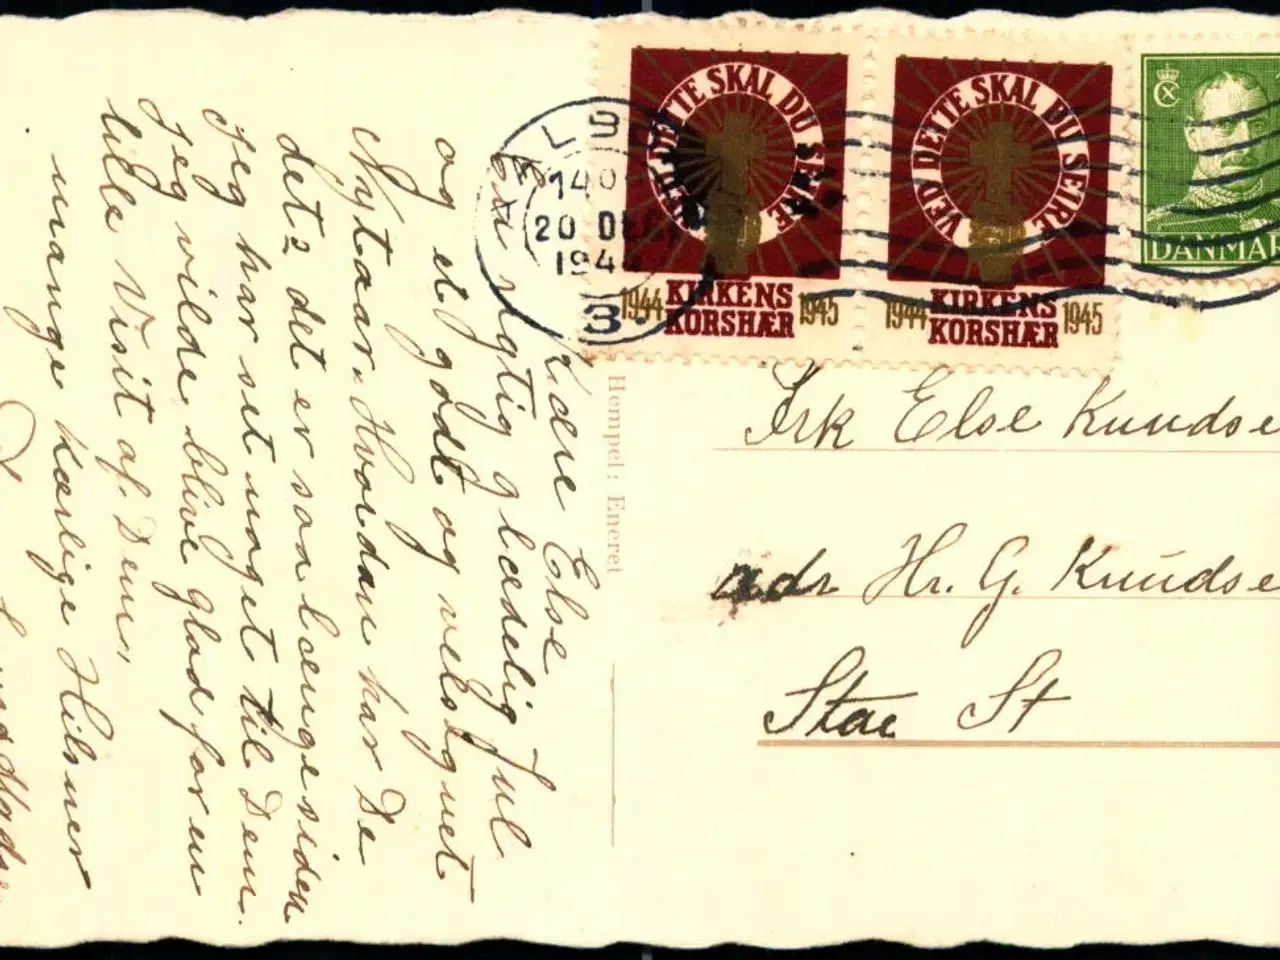 VED DETTE SKAL DU SEJRE
1944 KIRKENS 1945
KORSHÆR
VED DETTE SKAL DU SEJRE
1944 KIRKENS 1945
KORSHÆR
CX
DANMAR
AALBO
140
20 DEC
194
3.
Kære Else
En rigtig glædelig Jul
og et godt og velsignet
Nytaar. Hvordan har De
det? det er saa længe siden
Jeg har set noget til Dem.
Jeg vilde blive glad for en
lille Visit af Dem,
mange kærlige Hilsner
Hempel: Eneret
Frk Else Knudse
adr Hr. G. Knudse
Stae St